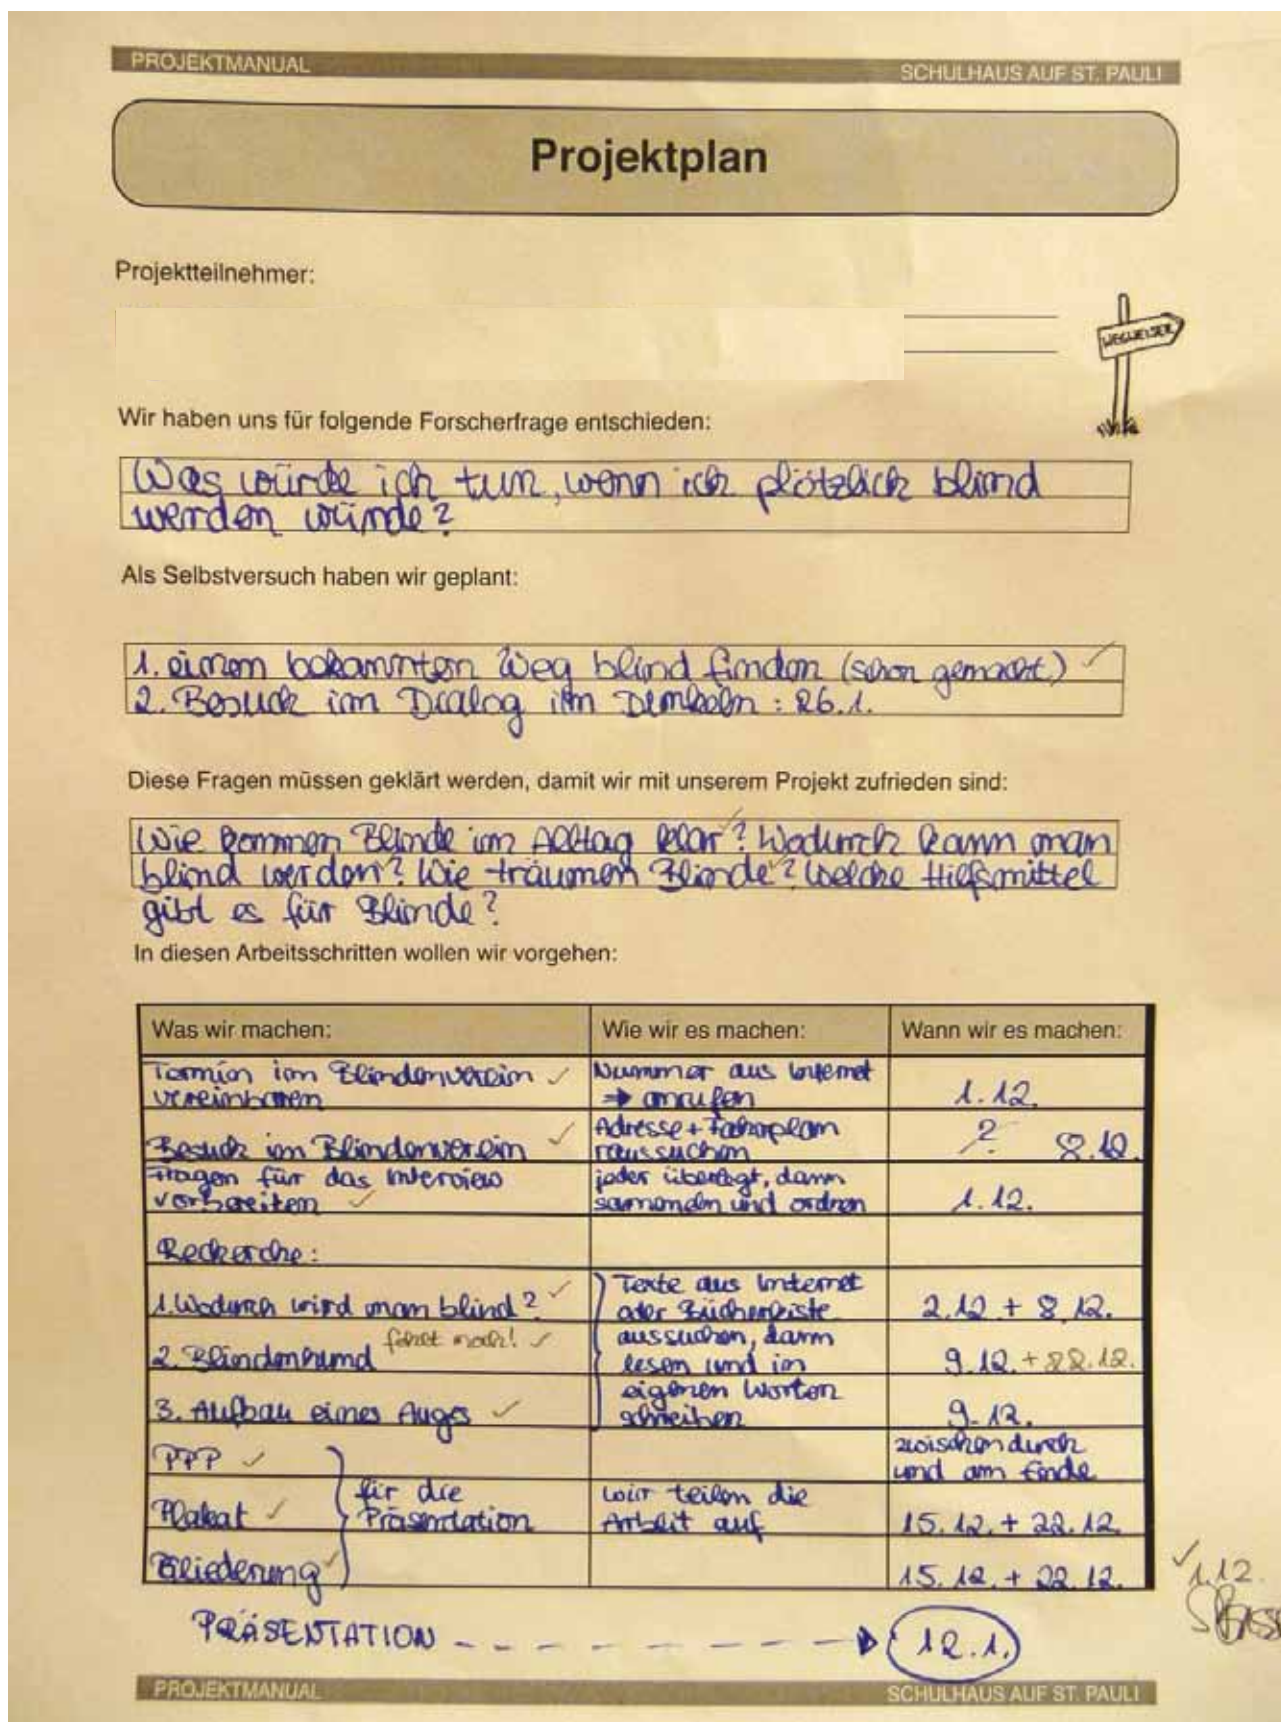 PROJEKTMANUAL
SCHULHAUS AUF ST. PAULI
Projektplan
Projektteilnehmer:
WEGWEISER
Wir haben uns für folgende Forscherfrage entschieden:
Was würde ich tun, wenn ich plötzlich blind
werden würde?
Als Selbstversuch haben wir geplant:
1. einen bekannten Weg blind finden (schon gemacht) ✓
2. Besuch im Dialog im Dunkeln: 26.1.
Diese Fragen müssen geklärt werden, damit wir mit unserem Projekt zufrieden sind:
Wie kommen Blinde im Alltag klar? Wodurch kann man
blind werden? Wie träumen Blinde? Welche Hilfsmittel
gibt es für Blinde?
In diesen Arbeitsschritten wollen wir vorgehen:
Was wir machen: Wie wir es machen: Wann wir es machen:
Termin im Blindenverein ✓ Nummer aus Internet
vereinbaren → anrufen 1.12.
Besuch im Blindenverein ✓ Adresse + Fahrplan raussuchen ? 8.12.
Fragen für das Interview jeder überlegt, dann
vorbereiten ✓ sammeln und ordnen 1.12.
Recherche:
1. Wodurch wird man blind? ✓ Texte aus Internet
oder Bücherkiste 2.12 + 8.12.
2. Blindenhund fehlt noch! ✓ aussuchen, dann
lesen und in 9.12. + 22.12.
3. Aufbau eines Auges ✓ eigenen Worten
schreiben 9.12.
PPP ✓ zwischendurch
und am Ende
Plakat ✓ für die Präsentation wir teilen die
Arbeit auf 15.12. + 22.12.
Gliederung ✓ 15.12. + 22.12.
✓ 1.12.
PRÄSENTATION - - - - - - - → 12.1.
PROJEKTMANUAL
SCHULHAUS AUF ST. PAULI